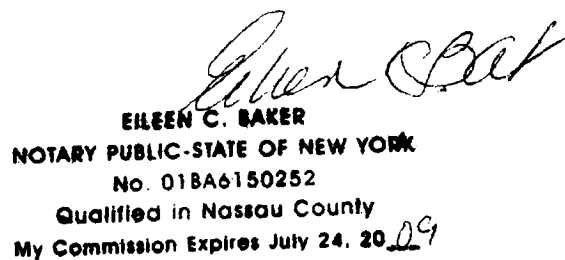 Eileen C Bak
EILEEN C. BAKER
NOTARY PUBLIC-STATE OF NEW YORK
No. 01BA6150252
Qualified in Nassau County
My Commission Expires July 24, 2009